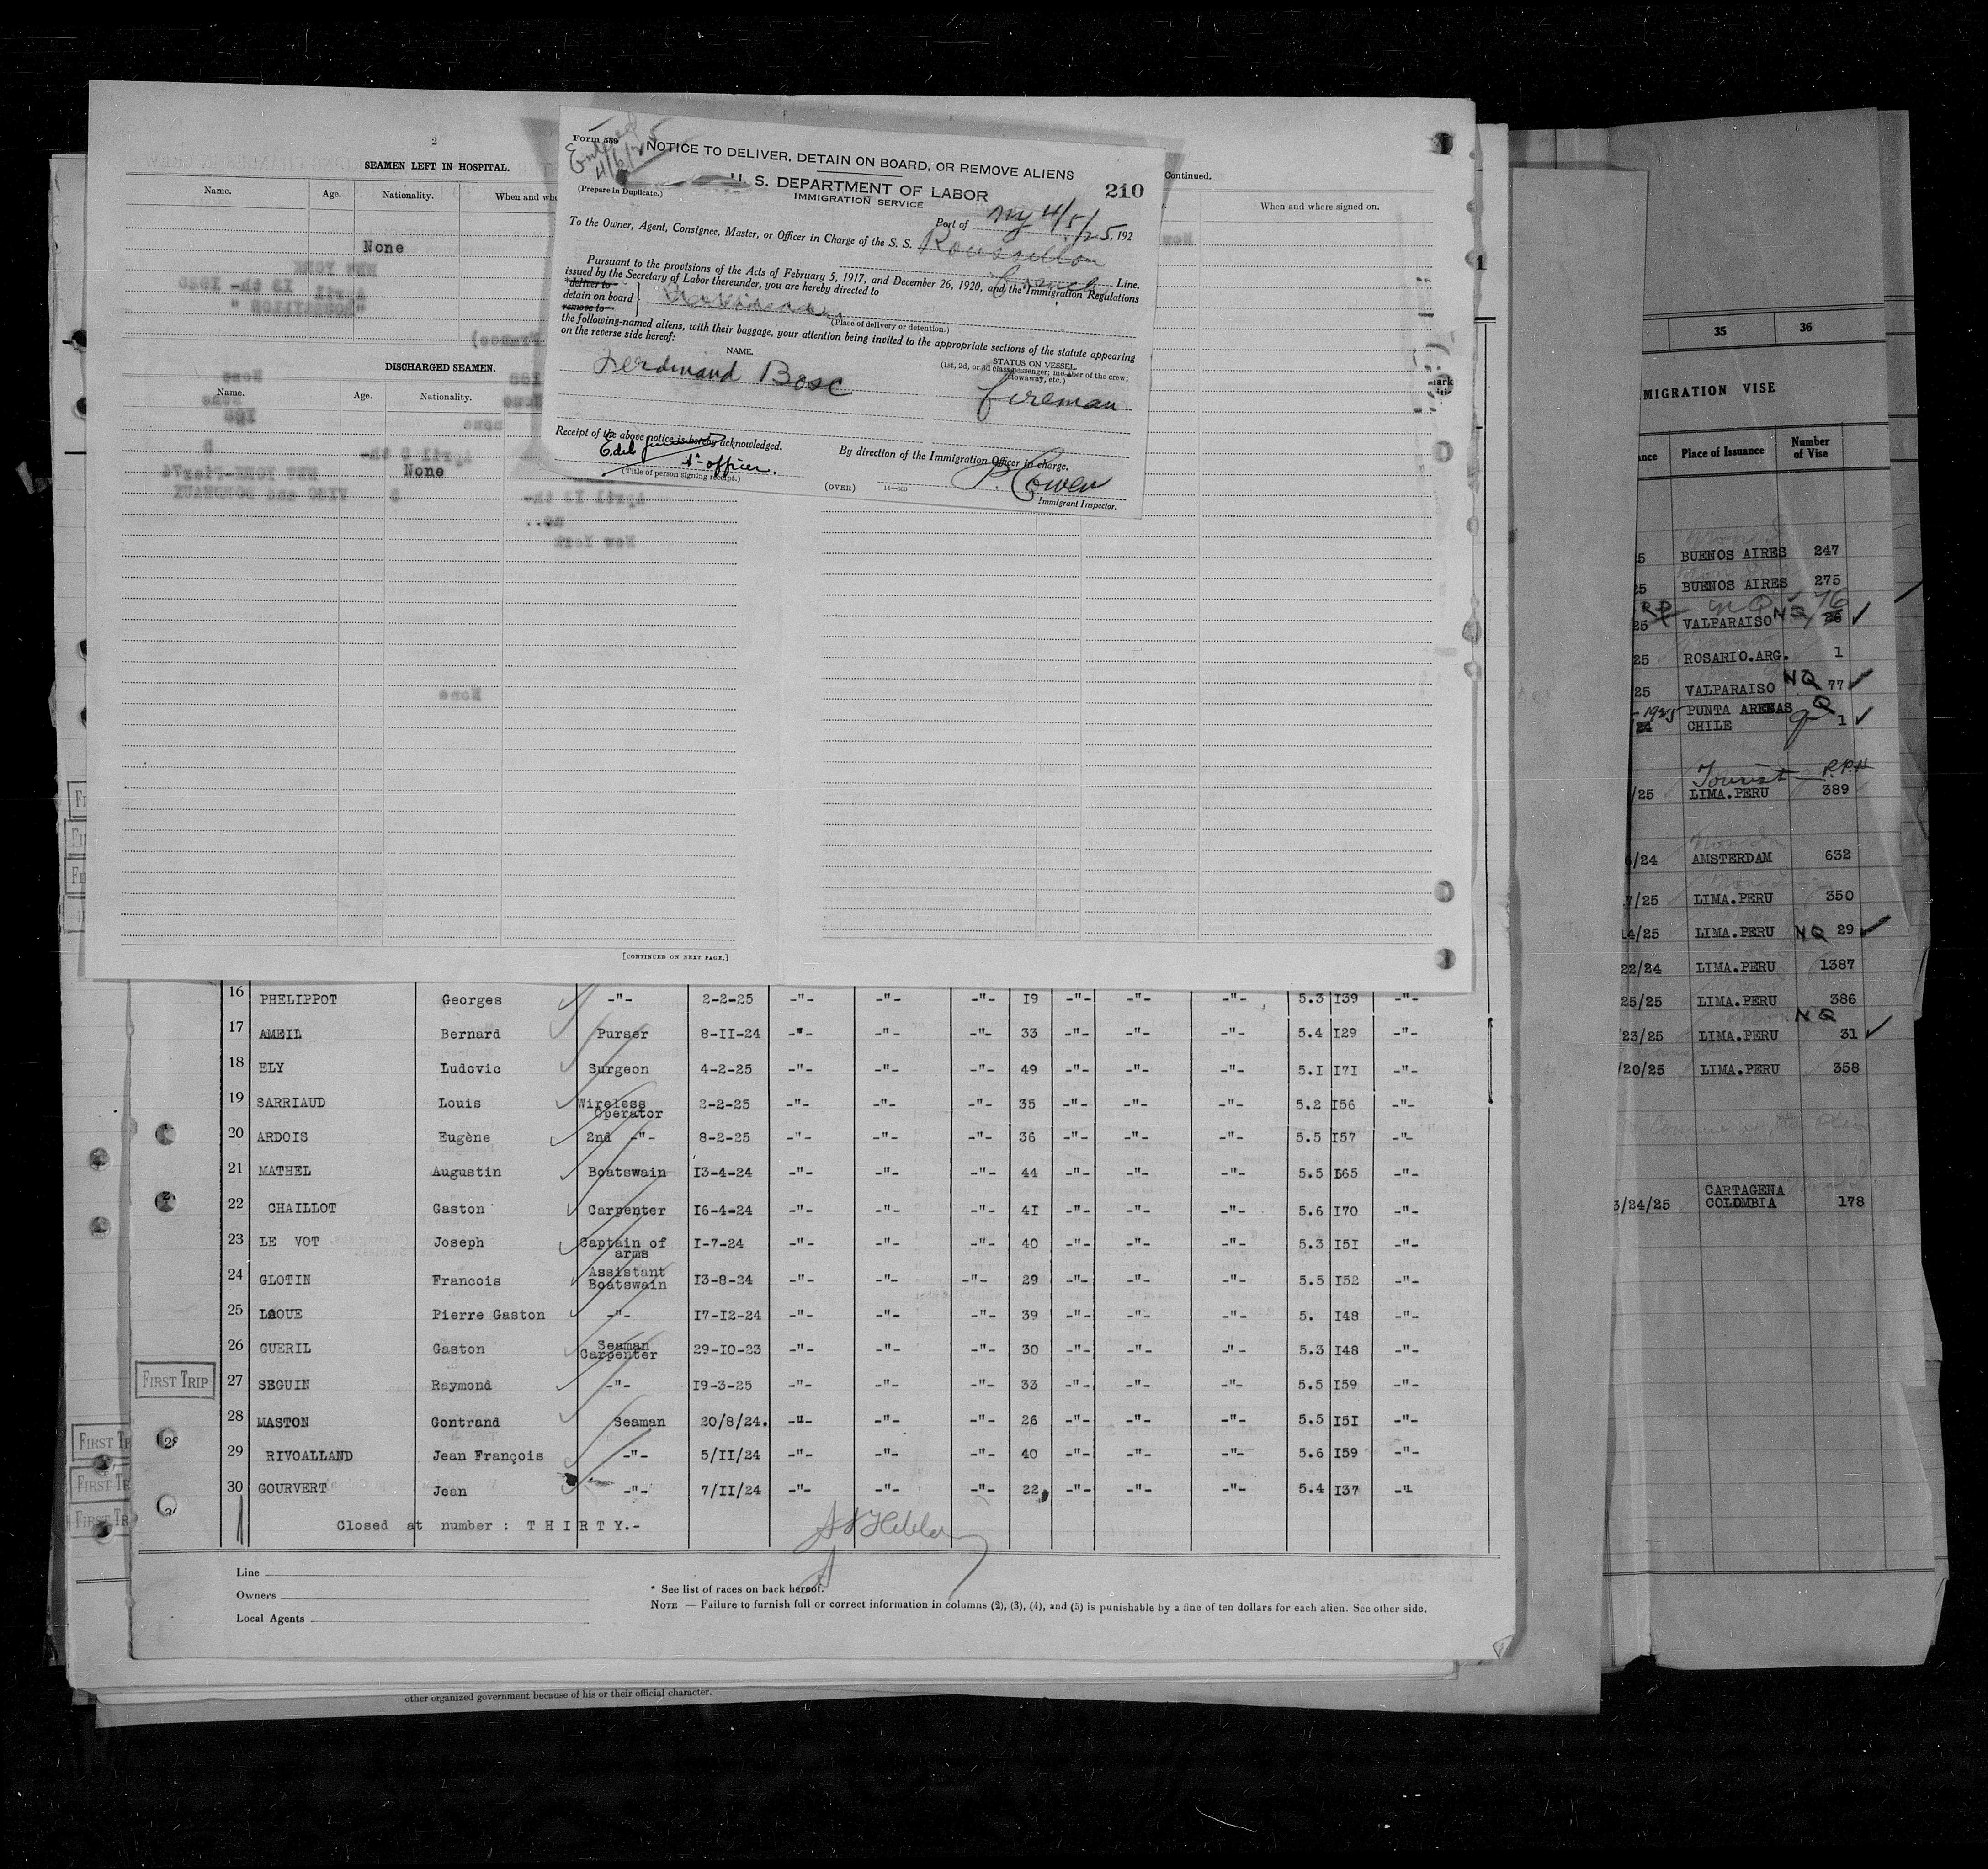 2
SEAMEN LEFT IN HOSPITAL.
Name. Age. Nationality.
None
DISCHARGED SEAMEN.
Name. Age. Nationality.
None
[CONTINUED ON NEXT PAGE.]
Continued.
When and where signed on.
Form 559
Entered
4/6/25
(Prepare in Duplicate.)
NOTICE TO DELIVER, DETAIN ON BOARD, OR REMOVE ALIENS
U. S. DEPARTMENT OF LABOR
IMMIGRATION SERVICE
210
Port of NY 4/5/25, 192
To the Owner, Agent, Consignee, Master, or Officer in Charge of the S. S. Roussillon
French Line.
Pursuant to the provisions of the Acts of February 5, 1917, and December 26, 1920, and the Immigration Regulations
issued by the Secretary of Labor thereunder, you are hereby directed to
deliver to
detain on board
remove to
(Place of delivery or detention.)
the following-named aliens, with their baggage, your attention being invited to the appropriate sections of the statute appearing
on the reverse side hereof:
NAME. STATUS ON VESSEL
(1st, 2d, or 3d class passenger; member of the crew;
stowaway, etc.)
Ferdinand Bosc fireman
Receipt of the above notice is hereby acknowledged.
1st officer.
(Title of person signing receipt.)
By direction of the Immigration Officer in charge.
P. Cowen
Immigrant Inspector.
(OVER) 14—569
16 PHELIPPOT Georges -"- 2-2-25 -"- -"- -"- I9 -"- -"- -"- 5.3 I39 -"-
17 AMEIL Bernard Purser 8-II-24 -"- -"- -"- 33 -"- -"- -"- 5.4 I29 -"-
18 ELY Ludovic Surgeon 4-2-25 -"- -"- -"- 49 -"- -"- -"- 5.I I7I -"-
19 SARRIAUD Louis Wireless Operator 2-2-25 -"- -"- -"- 35 -"- -"- -"- 5.2 I56 -"-
20 ARDOIS Eugène 2nd -"- 8-2-25 -"- -"- -"- 36 -"- -"- -"- 5.5 I57 -"-
21 MATHEL Augustin Boatswain I3-4-24 -"- -"- -"- 44 -"- -"- -"- 5.5 I65 -"-
22 CHAILLOT Gaston Carpenter I6-4-24 -"- -"- -"- 4I -"- -"- -"- 5.6 I70 -"-
23 LE VOT Joseph Captain of arms I-7-24 -"- -"- -"- 40 -"- -"- -"- 5.3 I5I -"-
24 GLOTIN Francois Assistant Boatswain I3-8-24 -"- -"- -"- 29 -"- -"- -"- 5.5 I52 -"-
25 LAOUE Pierre Gaston -"- I7-I2-24 -"- -"- -"- 39 -"- -"- -"- 5. I48 -"-
26 GUERIL Gaston Seaman Carpenter 29-IO-23 -"- -"- -"- 30 -"- -"- -"- 5.3 I48 -"-
FIRST TRIP 27 SEGUIN Raymond -"- I9-3-25 -"- -"- -"- 33 -"- -"- -"- 5.5 I59 -"-
28 MASTON Gontrand Seaman 20/8/24. -"- -"- -"- 26 -"- -"- -"- 5.5 I5I -"-
29 RIVOALLAND Jean François -"- 5/II/24 -"- -"- -"- 40 -"- -"- -"- 5.6 I59 -"-
30 GOURVERT Jean -"- 7/II/24 -"- -"- -"- 22 -"- -"- -"- 5.4 I37 -"-
Closed at number : T H I R T Y.-
Line
Owners
Local Agents
* See list of races on back hereof.
NOTE — Failure to furnish full or correct information in columns (2), (3), (4), and (5) is punishable by a fine of ten dollars for each alien. See other side.
other organized government because of his or their official character.
FIRST TR
FIRST TR
FIRST TR
35 36
MIGRATION VISE
Place of Issuance Number of Vise
BUENOS AIRES 247
25 BUENOS AIRES 275
25 VALPARAISO NQ 76
25 ROSARIO.ARG. 1
25 VALPARAISO NQ 77
1925 PUNTA ARENAS CHILE Q 1
Tourist
/25 LIMA.PERU 389
/24 AMSTERDAM 632
/25 LIMA.PERU 350
14/25 LIMA.PERU NQ 29
22/24 LIMA.PERU 1387
25/25 LIMA.PERU 386
/23/25 LIMA.PERU NQ 31
/20/25 LIMA.PERU 358
3/24/25 CARTAGENA COLOMBIA 178